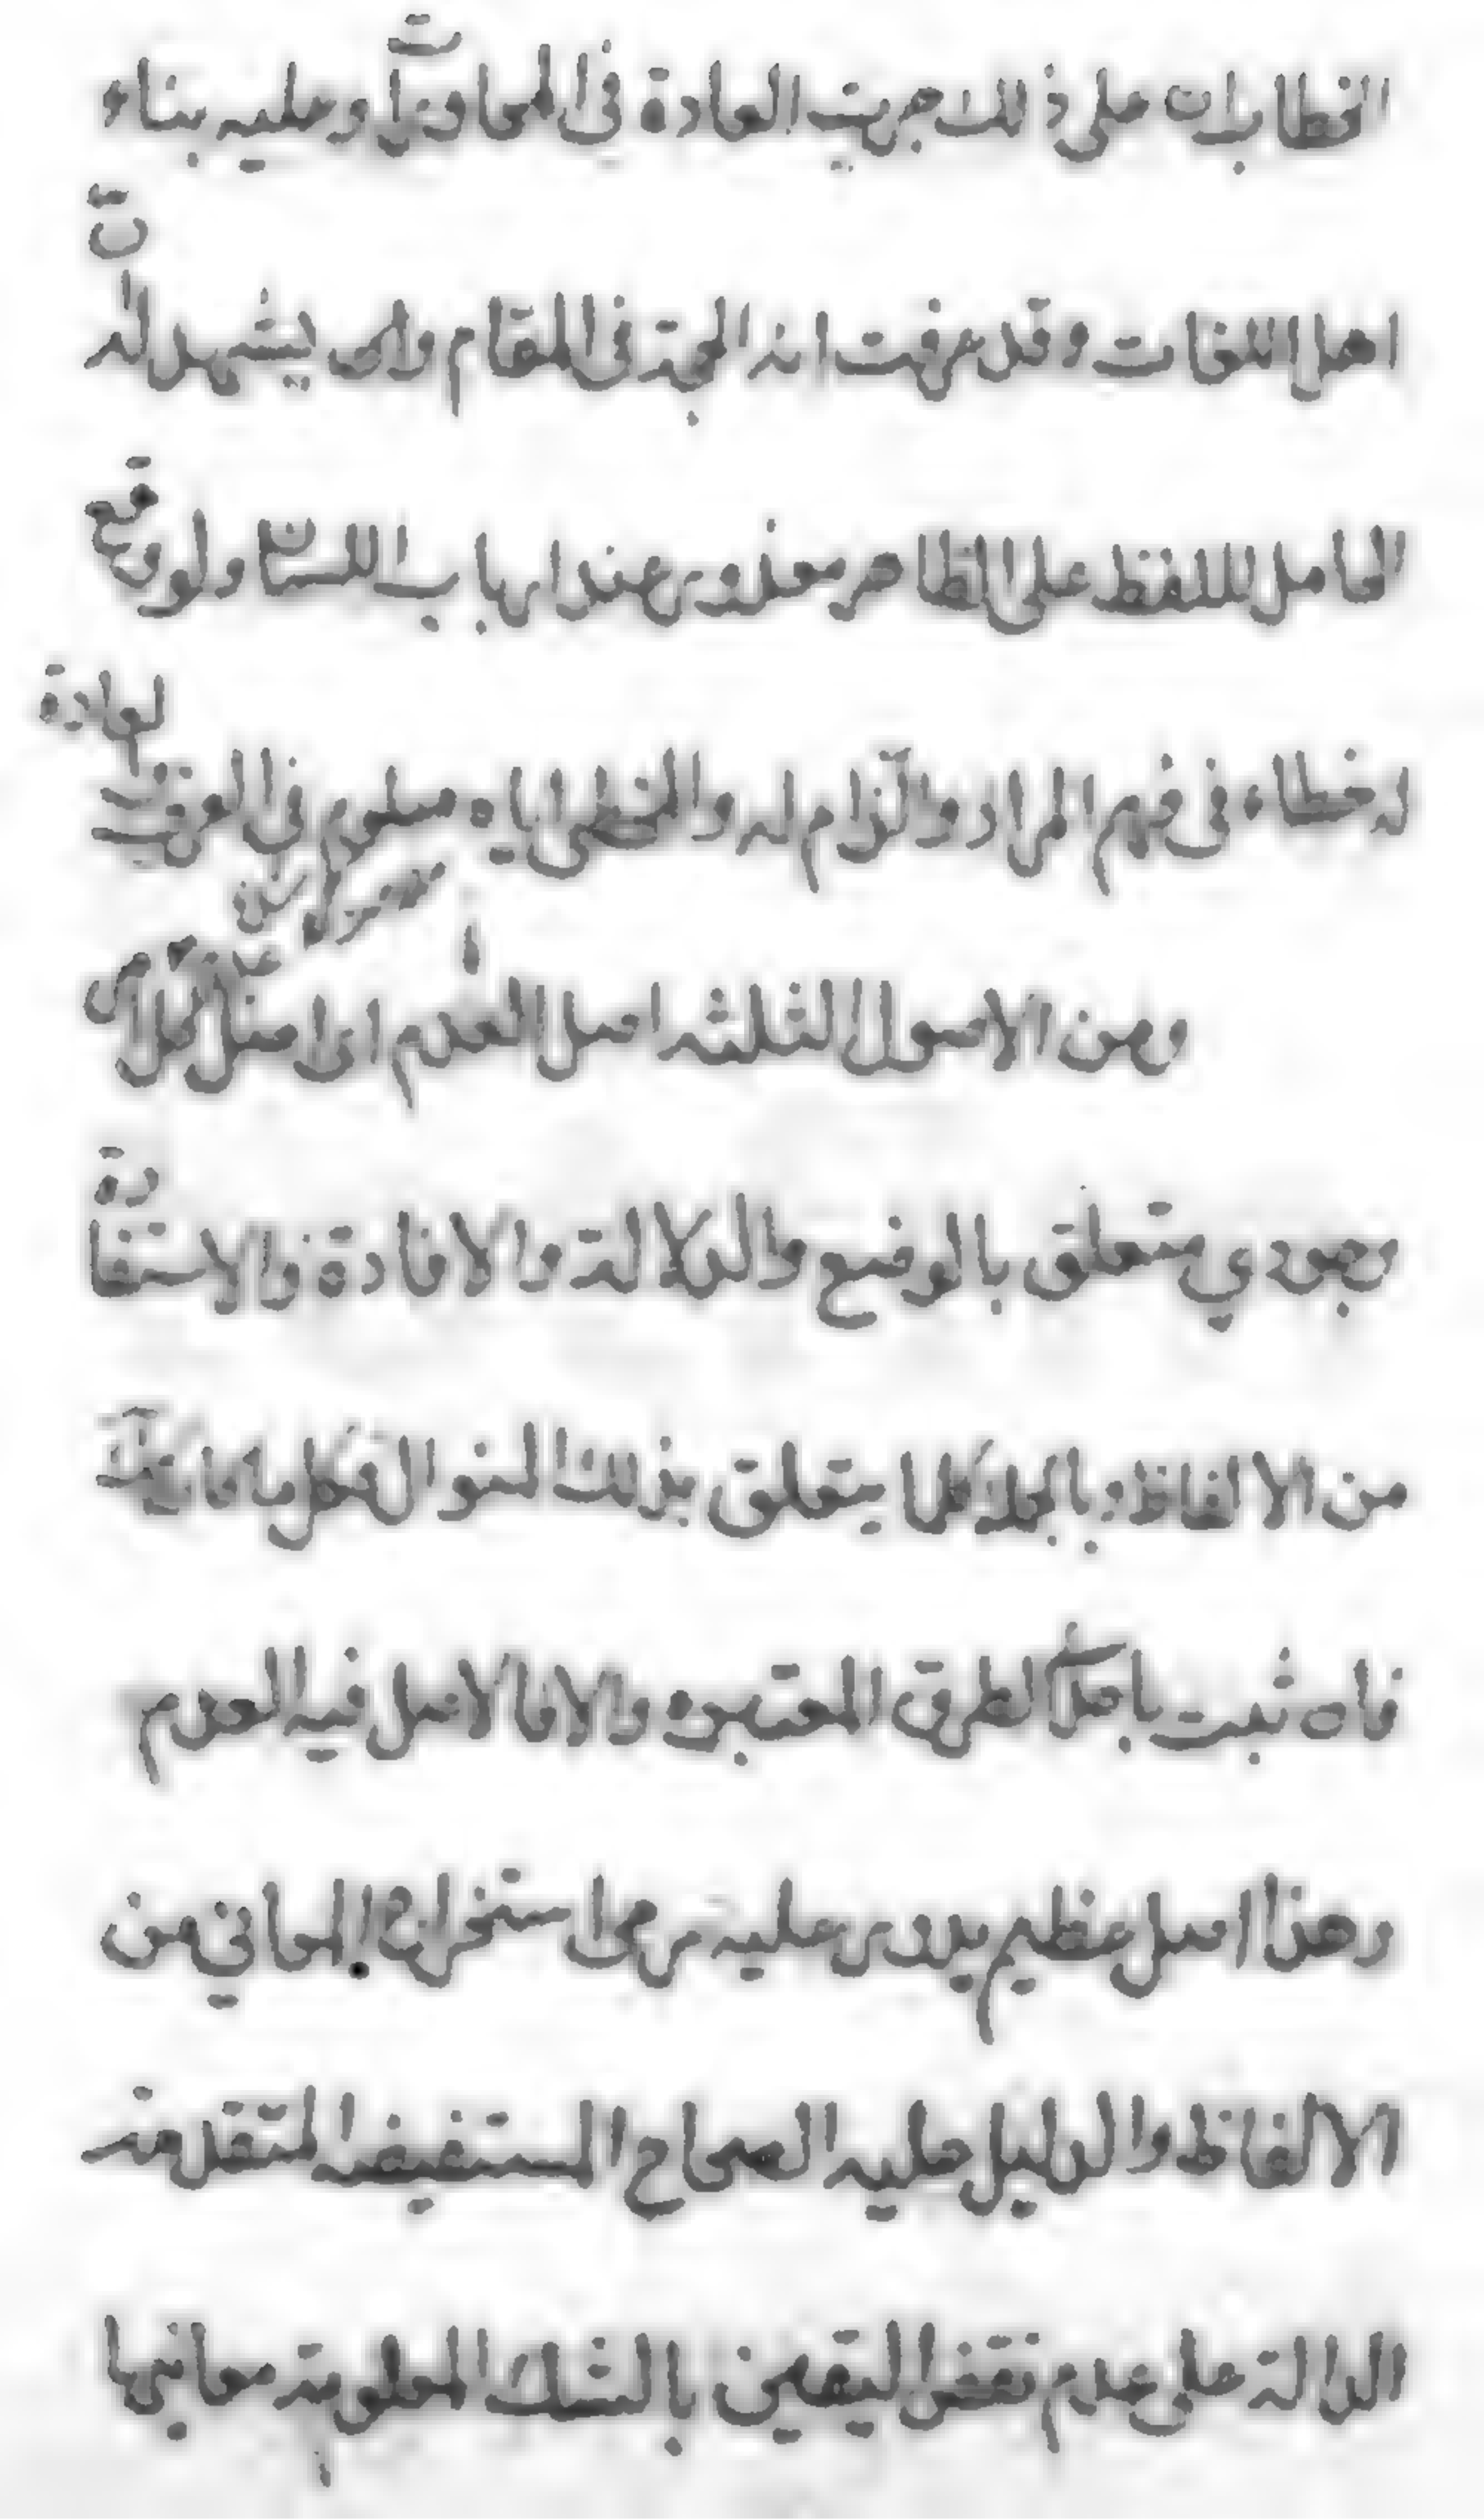 الخطابات على ذلك جريت العادة فى المحاورات وعليه بناء
اهل اللغات وقد عرفت انه الحجة فى المقام والى يشهد له ان
الحامل للفظ على الظاهر معذور عند ارباب اللسان ولو وقع
له خطاء فى فهم المراد والزام له والمخطى اياه معلوم فى العرف لعادة
ومن الاصول الثلثه اصل العدم اى اصل كل امر
وجودي متعلق بالوضع والدلالة والافادة والاستفادة
من الالفاظ وبالجملة كلما يتعلق بذلك المنوال فكل
فان ثبت باحد الطرق المعتبره والا فالاصل فيه العدم
وهذا اصل عظيم يدور عليه رحى استخراج المعاني من
الالفاظ والدليل عليه الصحاح المستفيضه المتقدمة
الدالة على عدم نقض اليقين بالشك المعلومة معانيها